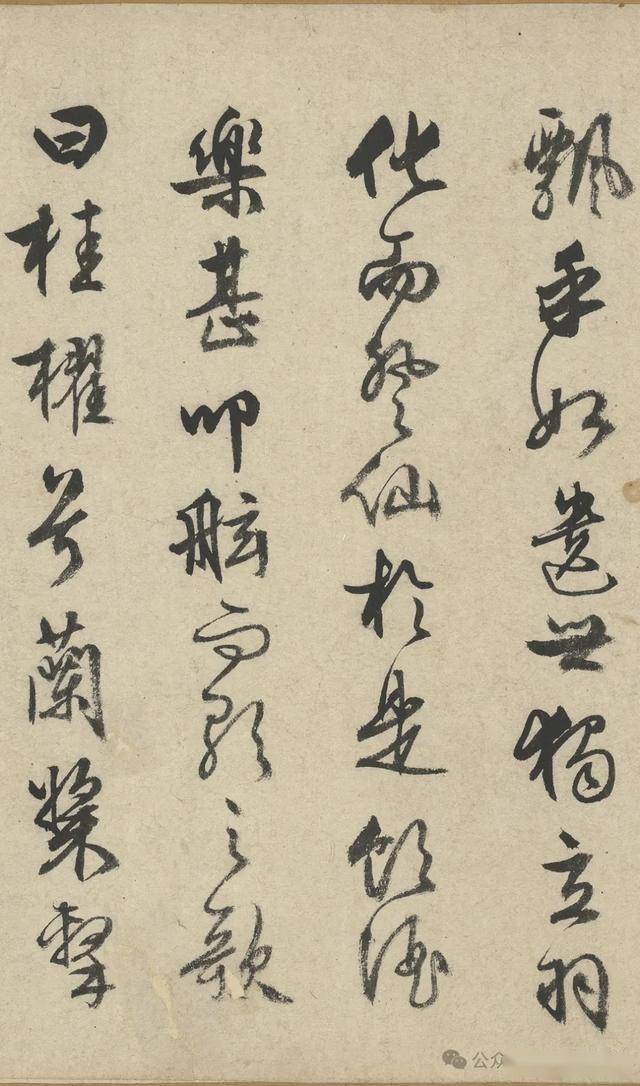 飄乎如遺世獨立羽
化而登仙於是飲酒
樂甚叩舷而歌之歌
曰桂櫂兮蘭槳擊
公众